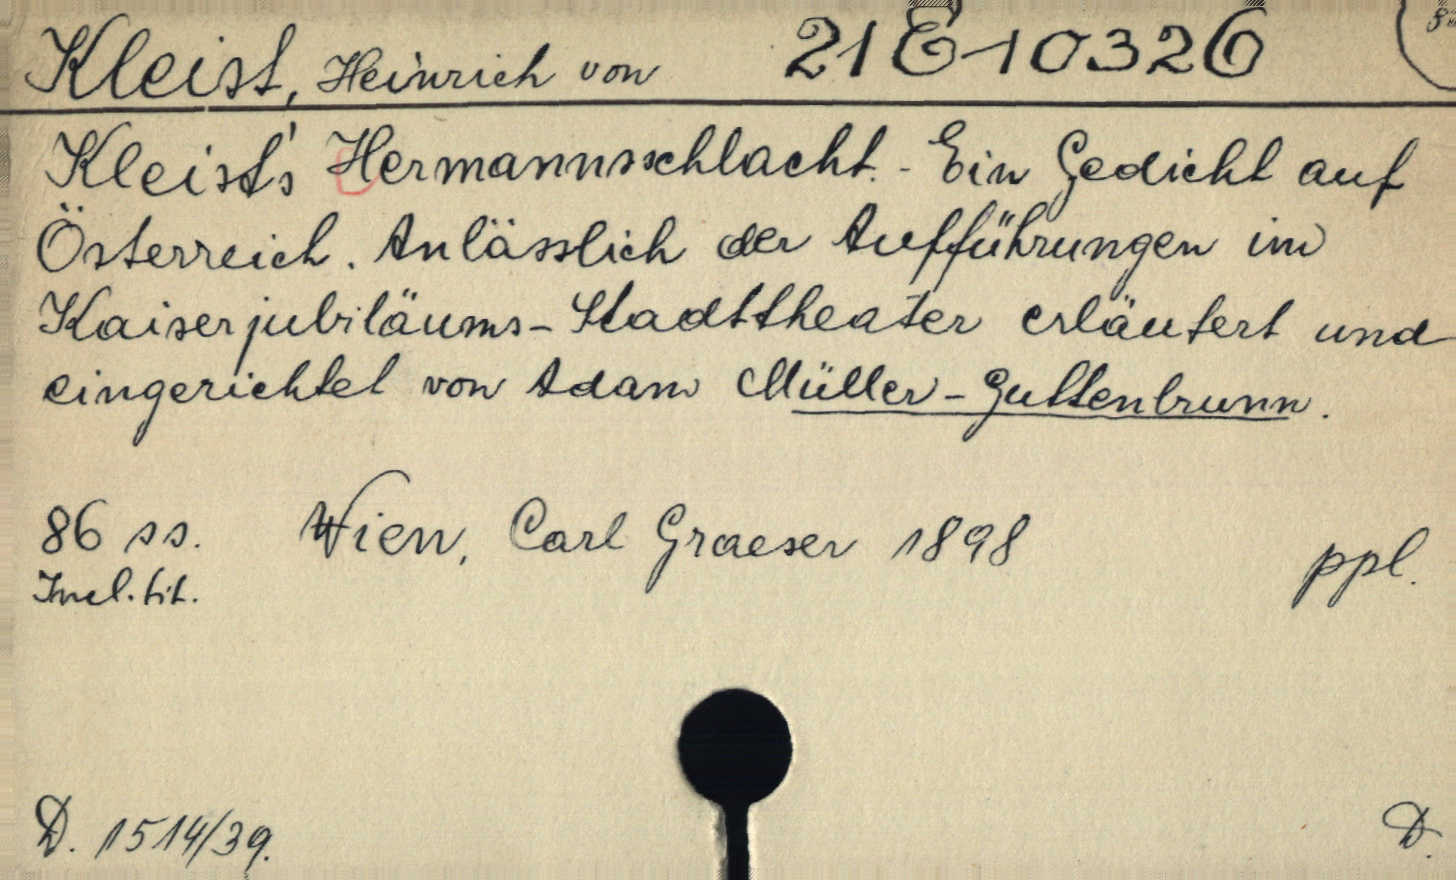 Kleist, Heinrich von 21 E 10326
Kleist's Hermannsschlacht. - Ein Gedicht auf
Österreich. Anlässlich der Aufführungen im
Kaiserjubiläums-Stadttheater erläutert und
eingerichtet von Adam Müller-Guttenbrunn.
86 ss. Wien, Carl Graeser 1898 ppl.
Incl. tit.
D. 1514/39. D.